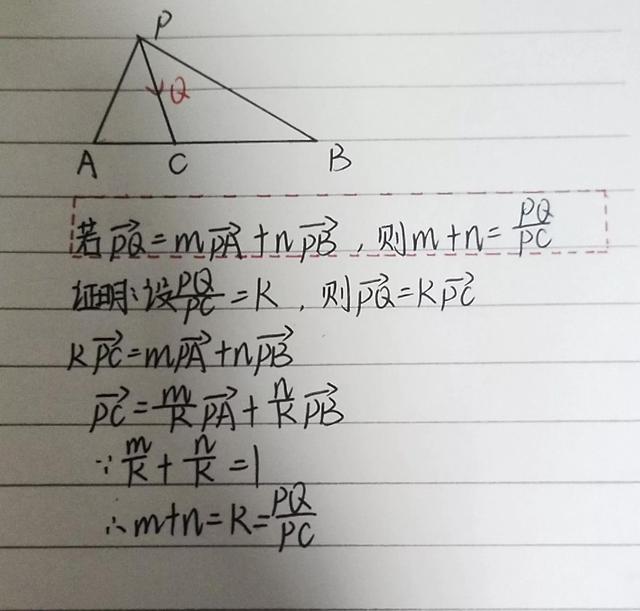 P
Q
A C B
若 $\overrightarrow{PQ}=m\overrightarrow{PA}+n\overrightarrow{PB}$ ，则 $m+n=\frac{PQ}{PC}$
证明：设 $\frac{PQ}{PC}=K$ ，则 $\overrightarrow{PQ}=K\overrightarrow{PC}$
$K\overrightarrow{PC}=m\overrightarrow{PA}+n\overrightarrow{PB}$
$\overrightarrow{PC}=\frac{m}{K}\overrightarrow{PA}+\frac{n}{K}\overrightarrow{PB}$
∵ $\frac{m}{K}+\frac{n}{K}=1$
∴ $m+n=K=\frac{PQ}{PC}$